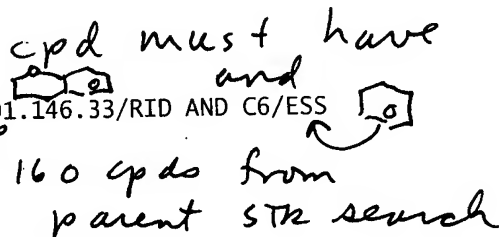 cpd must have
and
1.146.33/RID AND C6/ESS
160 cpds from
parent STR search